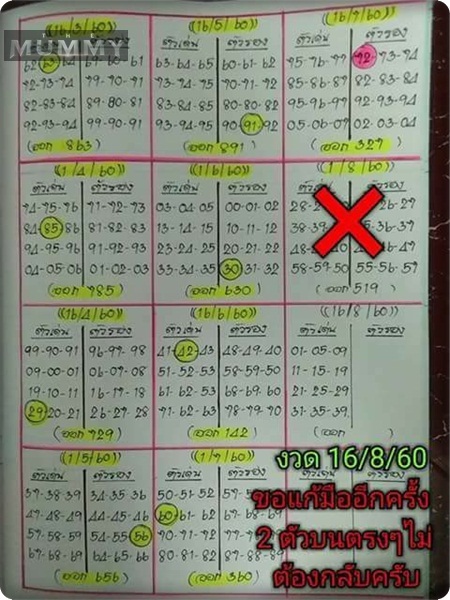 MUMMY
((16/3/60)) ((16/5/60)) ((16/7/60))
ตัวเด่น ตัวรอง ตัวเด่น ตัวรอง
63-64-65 60-61-62 75-76-77 72-73-74
72-73-74 79-70-71 73-74-75 70-71-72 85-86-87
82-83-84 89-80-81 83-84-85 80-80-82 95-96-97 92-93-94
92-93-94 99-90-91 93-94-95 90-91-92 05-06-07 02-03-04
(ออก 863) (ออก 891) (ออก 327)
((1/4/60)) ((1/6/60)) ((1/8/60))
ตัวเด่น ตัวรอง ตัวเด่น ตัวรอง
74-75-76 71-72-73 03-04-05 00-01-02
84-85-86 81-82-83 13-14-15 10-11-12
94-95-96 91-92-93 23-24-25 20-21-22
04-05-06 01-02-03 33-34-35 30-31-32 58-59-50 55-56-57
(ออก 785) (ออก 630) (ออก 519)
((16/4/60)) ((16/6/60)) ((16/8/60))
ตัวเด่น ตัวรอง ตัวเด่น ตัวรอง ตัวเด่น ตัวรอง
99-90-91 96-97-98 41-42-43 48-49-40 01-05-09
09-00-01 06-07-08 51-52-53 58-59-50 11-15-19
19-10-11 16-17-18 61-62-63 68-69-60 21-25-29
29-20-21 26-27-28 71-72-73 78-79-70 31-35-39
(ออก 729) (ออก 142) (ออก )
((1/5/60)) ((1/7/60))
ตัวเด่น ตัวรอง ตัวเด่น ตัวรอง
37-38-39 34-35-36 50-51-52
47-48-49 44-45-46 60-61-62
57-58-59 54-55-56 70-71-72
67-68-69 64-65-66 80-81-82
(ออก 656) (ออก 360)
งวด 16/8/60
ขอแก้มืออีกครั้ง
2 ตัวบนตรงๆไม่
ต้องกลับครับ